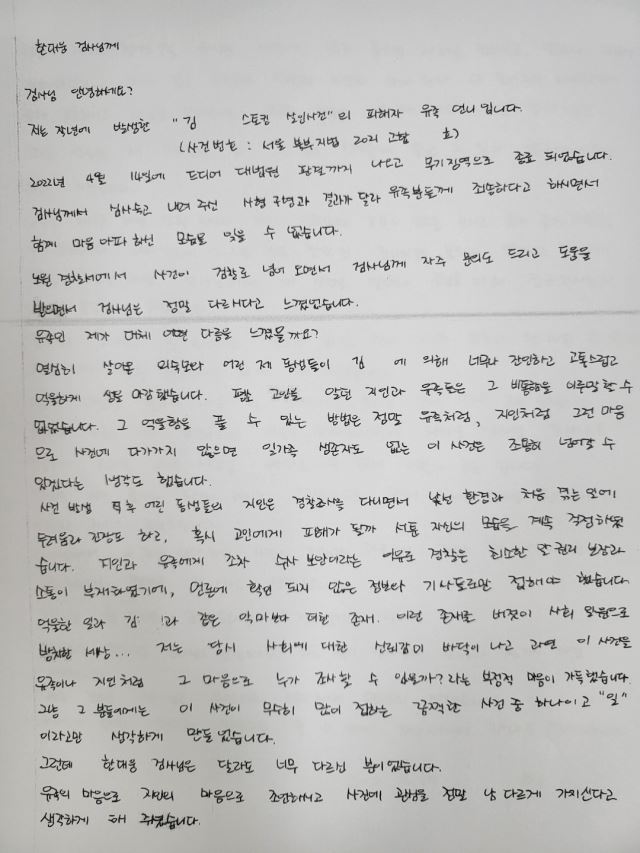 한대웅 검사님께
검사님 안녕하세요?
저는 작년에 발생한 "김 스토킹 살인사건"의 피해자 유족 언니 입니다.
(사건번호 : 서울 북부지법 2021 고합 호)
2022년 4월 14일에 드디어 대법원 판결까지 나오고 무기징역으로 종료 되었습니다.
검사님께서 심사숙고 내려 주신 사형 구형과 결과가 달라 유족분들께 죄송하다고 하시면서
함께 마음 아파 하신 모습을 잊을 수 없습니다.
노원 경찰서에서 사건이 검찰로 넘어 오면서 검사님께 자주 문의도 드리고 도움을
받으면서 검사님은 정말 다르시다고 느꼈었습니다.
유족인 제가 대체 어떤 다름을 느꼈을까요?
열심히 살아온 외숙모와 어린 제 동생들이 김 에 의해 너무나 잔인하고 고통스럽고
억울하게 생을 마감했습니다. 평소 고인을 알던 지인과 유족들은 그 비통함을 이루말할 수
없었습니다. 그 억울함을 풀 수 있는 방법은 정말 유족처럼, 지인처럼 그런 마음
으로 사건에 다가가지 않으면 일가족 생존자도 없는 이 사건은 조용히 넘어갈 수
있겠다는 생각도 했습니다.
사건 발생 직후 어린 동생들의 지인은 경찰조사를 다니면서 낯선 환경과 처음 겪는 일에
두려움과 긴장도 하고, 혹시 고인에게 피해가 될까 서툰 자신의 모습을 계속 걱정하였
습니다. 지인과 유족에게 조차 수사 보안이라는 이유로 경찰은 최소한 알 권리 보장과
소통이 부재하였기에, 언론에 확인 되지 않은 정보와 기사들로만 접해야 했습니다.
억울한 일과 김 과 같은 악마보다 더한 존재. 이런 존재가 버젓이 사회 일원으로
방치한 세상... 저는 당시 사회에 대한 신뢰감이 바닥이 나고 과연 이 사건을
유족이나 지인처럼 그 마음으로 누가 조사할 수 있을까? 라는 부정적 마음이 가득했습니다.
그냥 그 분들에게는 이 사건이 무수히 많이 접하는 끔찍한 사건 중 하나이고 "일"
이라고만 생각하게 만들었습니다.
그런데 한대웅 검사님은 달라도 너무 다르신 분이었습니다.
유족의 마음으로 지인의 마음으로 조언하시고 사건에 관심을 정말 남 다르게 가지신다고
생각하게 해 주셨습니다.